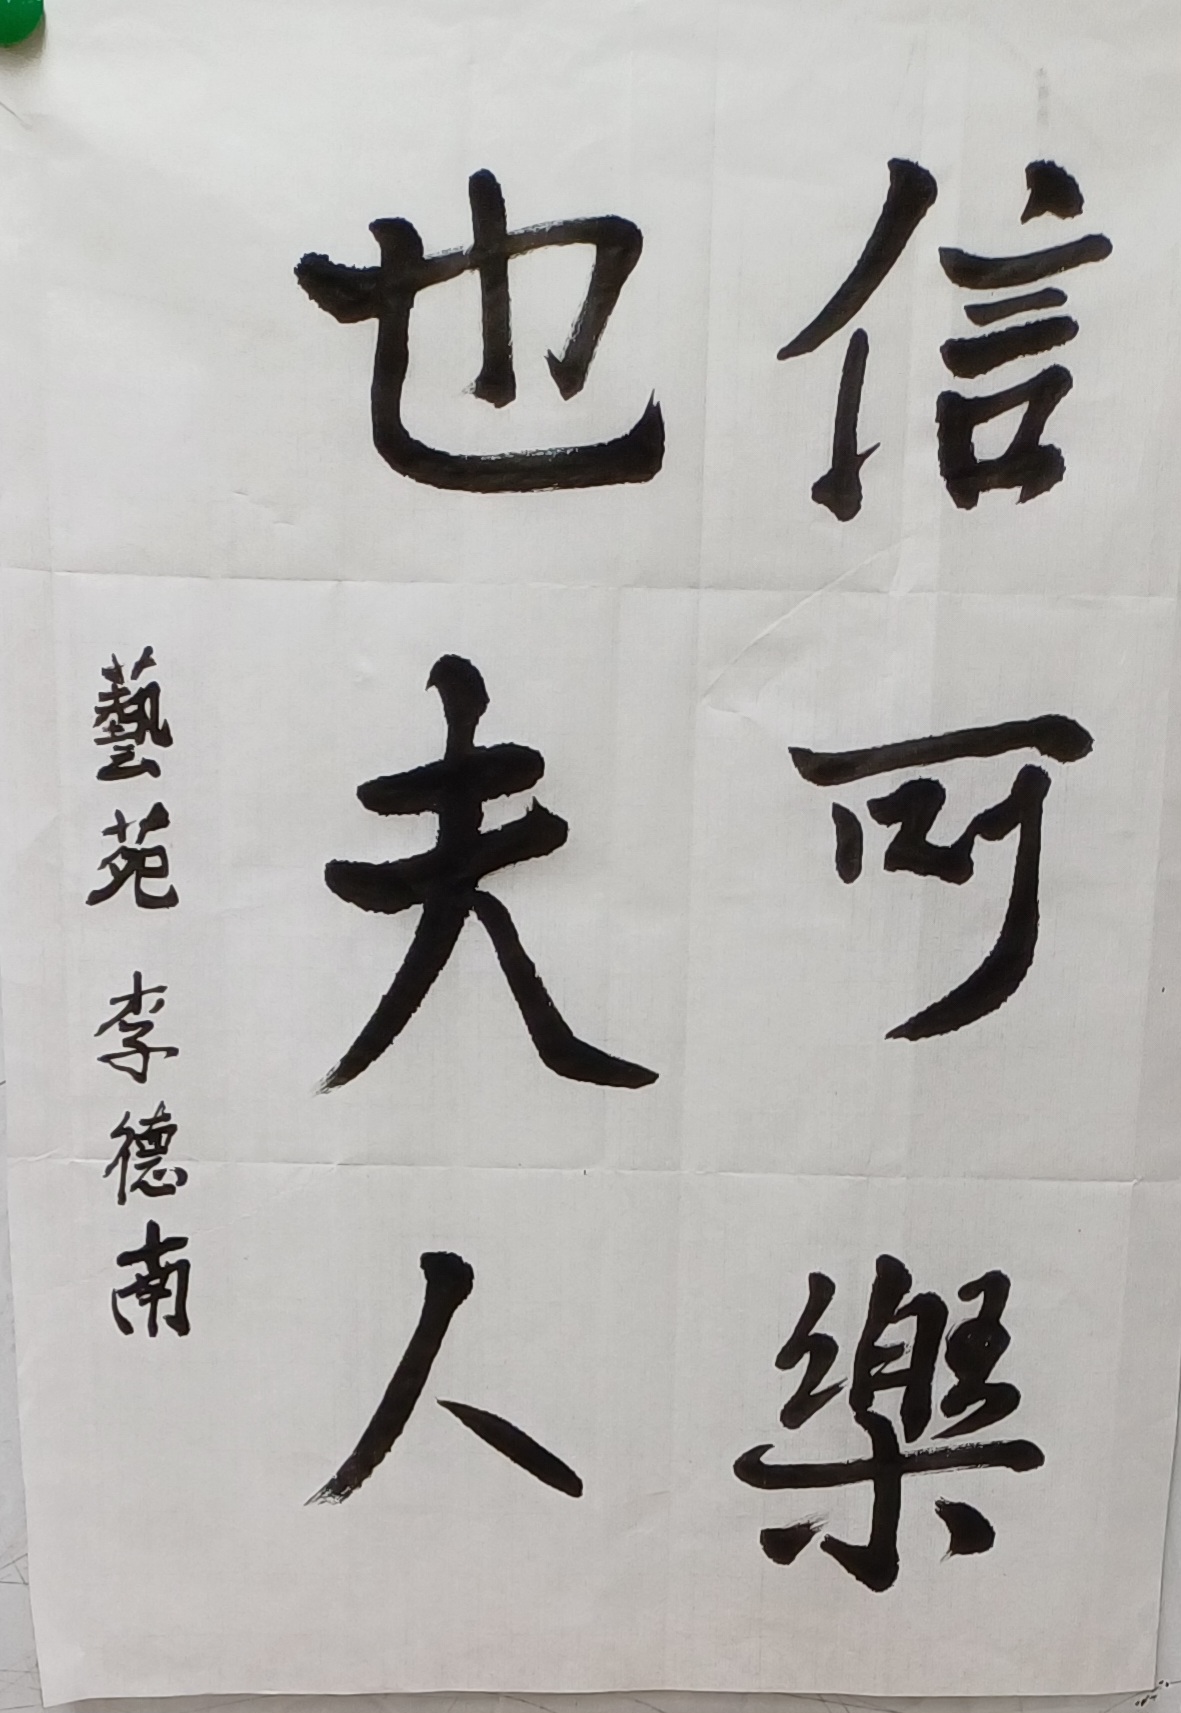 信可樂
也夫人
藝苑 李德南